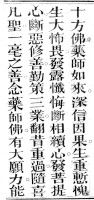 十方佛藥師如來深信因果生重慚愧
生大怖畏發露懺悔斷相續心發菩提
心斷惡修善勤策三業翻昔重過隨喜
凡聖一毫之善念藥師佛有大願力能